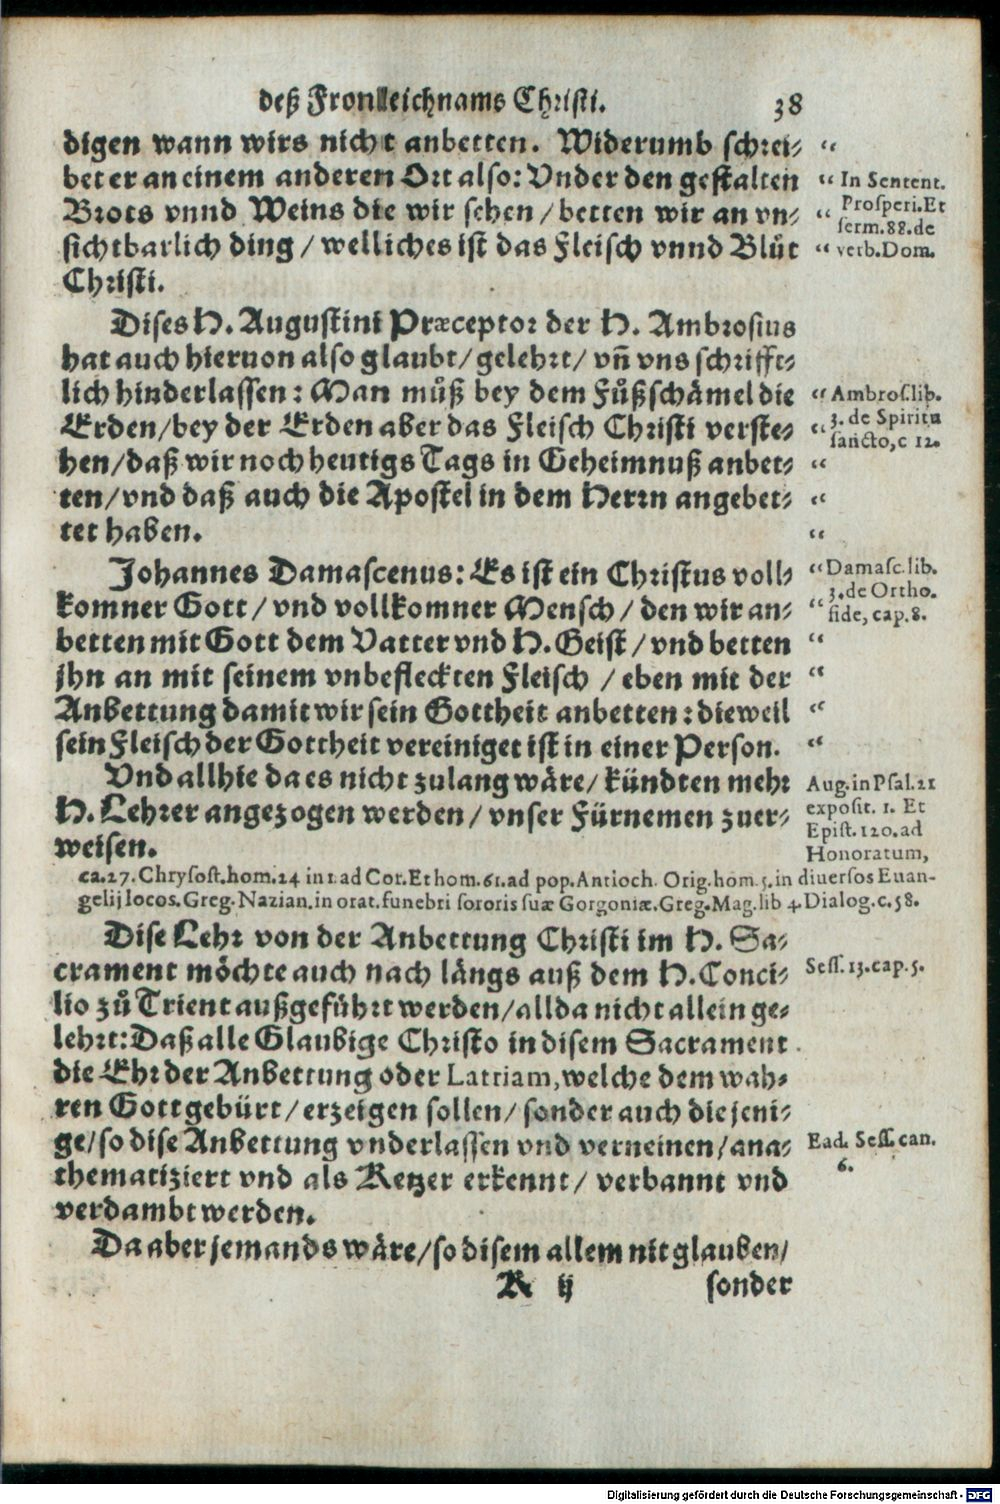 deß Fronlleichnams Christi. 38
digen wann wirs nicht anbetten. Widerumb schrei-
bet er an einem anderen Ort also: Vnder den gestalten
Brots vnnd Weins die wir sehen / betten wir an vn-
sichtbarlich ding / welliches ist das Fleisch vnnd Blůt
Christi.
“ In Sentent.
“ Prosperi. Et
serm. 88. de
“ verb. Dom.
Dises H. Augustini Præceptor der H. Ambrosius
hat auch hieruon also glaubt / gelehrt / vñ vns schrifft-
lich hinderlassen: Man můß bey dem Fůßschämel die
Erden / bey der Erden aber das Fleisch Christi verste-
hen / daß wir noch heutigs Tags in Geheimnuß anbet-
ten / vnd daß auch die Apostel in dem Herrn angebet-
tet haben.
“ Ambros. lib.
“ 3. de Spiritu
sancto, c 12.
Johannes Damascenus: Es ist ein Christus voll-
komner Gott / vnd vollkomner Mensch / den wir an-
betten mit Gott dem Vatter vnd H. Geist / vnd betten
jhn an mit seinem vnbefleckten Fleisch / eben mit der
Anbettung damit wir sein Gottheit anbetten: dieweil
sein Fleisch der Gottheit vereiniget ist in einer Person.
“ Damasc. lib.
3. de Ortho.
“ fide, cap. 8.
Vnd allhie da es nicht zulang wäre / kündten mehr
H. Lehrer angezogen werden / vnser Fürnemen zuer-
weisen.
Aug. in Psal. 21
exposit. 1. Et
Epist. 120. ad
Honoratum,
ca. 27. Chrysost. hom. 24 in 1. ad Cor. Et hom. 61. ad pop. Antioch. Orig. hom. 5. in diuersos Euan-
gelij locos. Greg. Nazian. in orat. funebri sororis suæ Gorgoniæ. Greg. Mag. lib 4. Dialog. c. 58.
Dise Lehr von der Anbettung Christi im H. Sa-
crament möchte auch nach längs auß dem H. Conci-
lio zů Trient außgeführt werden / allda nicht allein ge-
lehrt: Daß alle Glaubige Christo in disem Sacrament
die Ehr der Anbettung oder Latriam, welche dem wah-
ren Gott gebürt / erzeigen sollen / sonder auch die jeni-
ge / so dise Anbettung vnderlassen vnd verneinen / ana-
thematiziert vnd als Ketzer erkennt / verbannt vnd
verdambt werden.
Sess. 13. cap. 5.
Ead. Sess. can.
6.
Da aber jemands wäre / so disem allem nit glauben /
K ij sonder
Digitalisierung gefördert durch die Deutsche Forschungsgemeinschaft - DFG